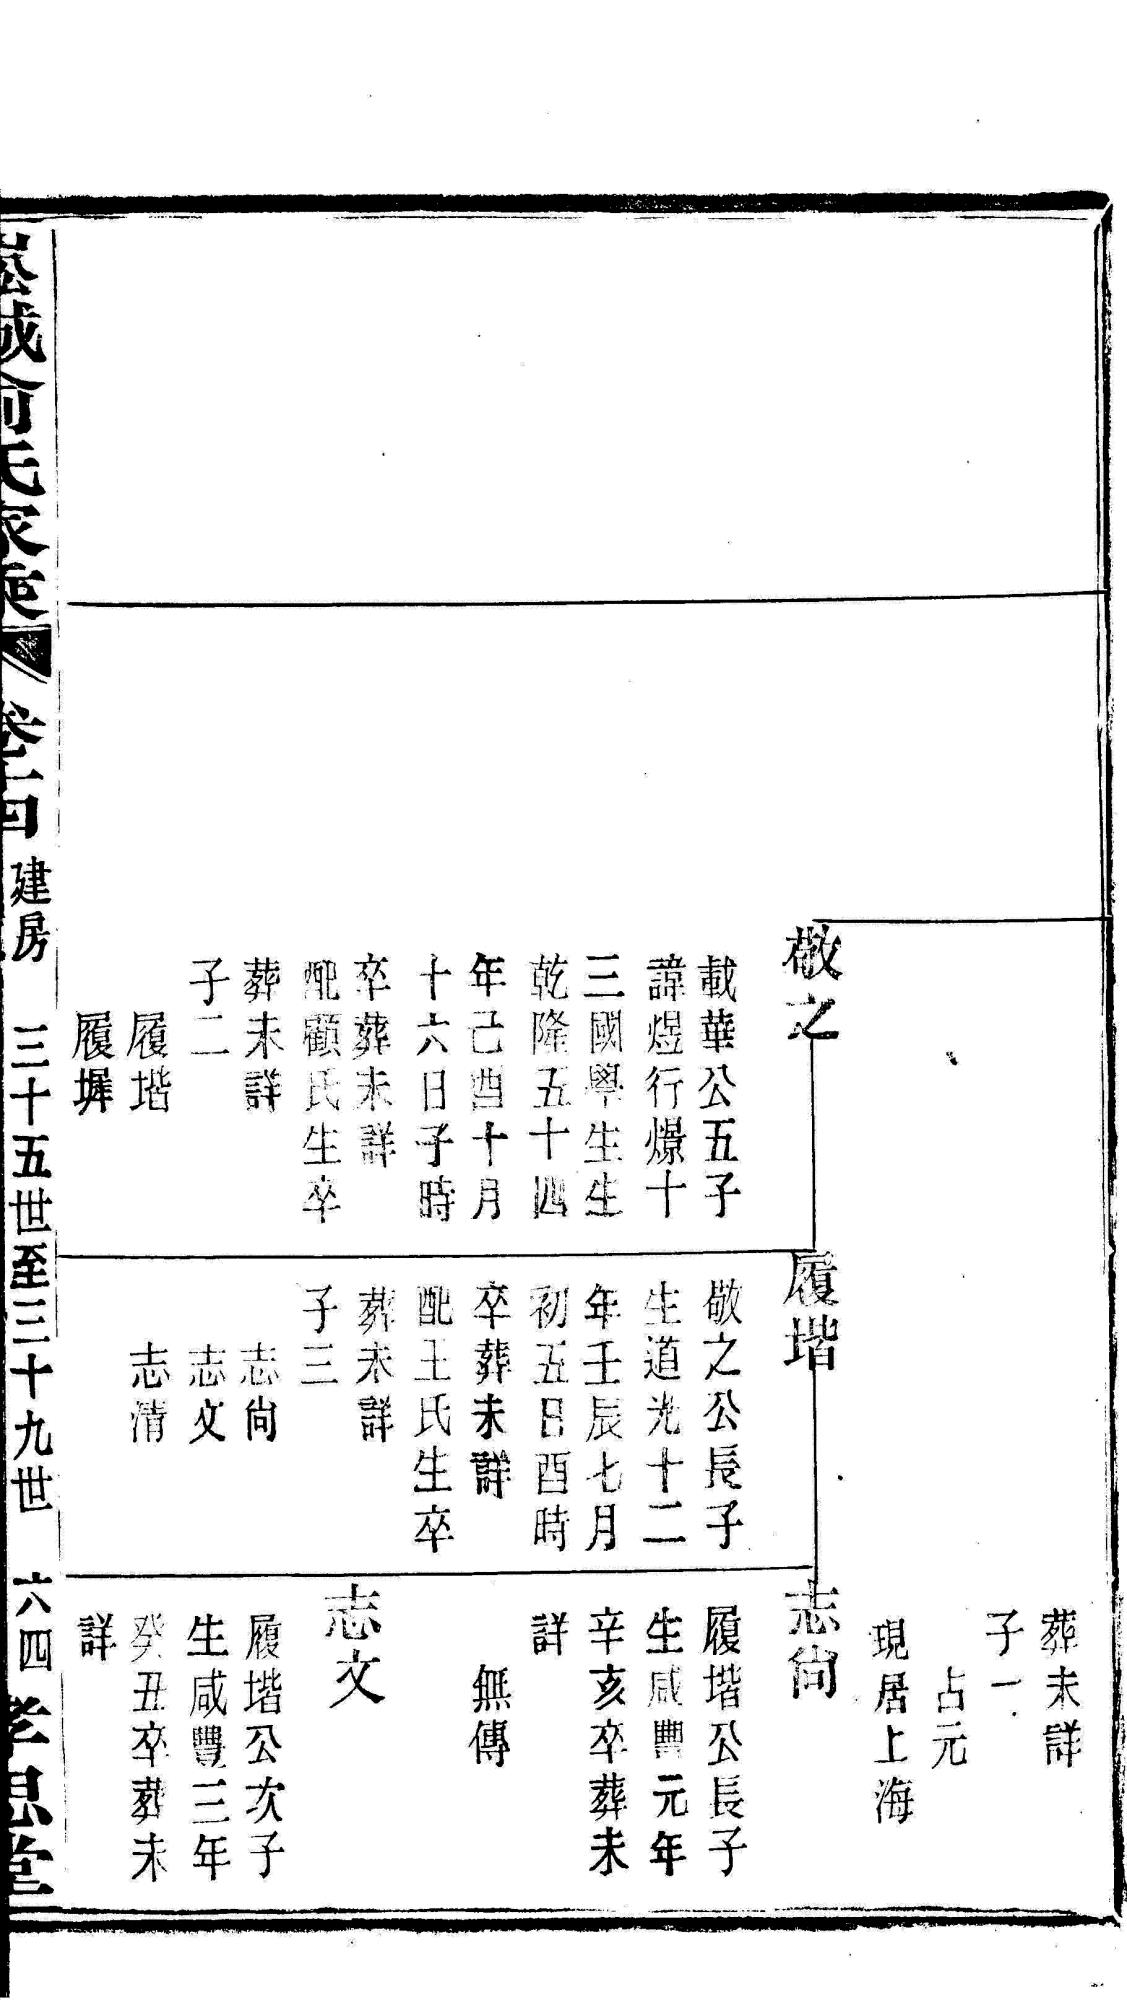 葬未詳
子一
占元
現居上海
敬之
載華公五子
諱煜行燝十
三國學生生
乾隆五十四
年己酉十月
十六日子時
卒葬未詳
配顧氏生卒
葬未詳
子二
履堦
履墀
履堦
敬之公長子
生道光十二
年壬辰七月
初五日酉時
卒葬未詳
配王氏生卒
葬未詳
子三
志尙
志文
志清
志尙
履堦公長子
生咸豐元年
辛亥卒葬未
詳
無傳
志文
履堦公次子
生咸豐三年
癸丑卒葬未
詳
崧城俞氏家乘 卷十四 建房 三十五世至三十九世 六四 孝思堂